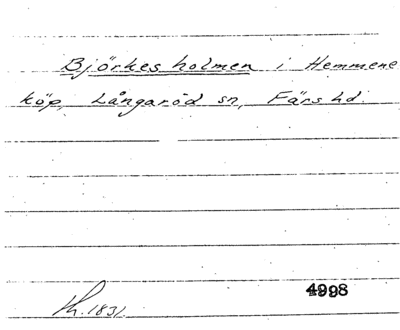 Björkesholmen i Hemmene
köp, Långaröd sn, Färs hd.
Kh. 1831
4998